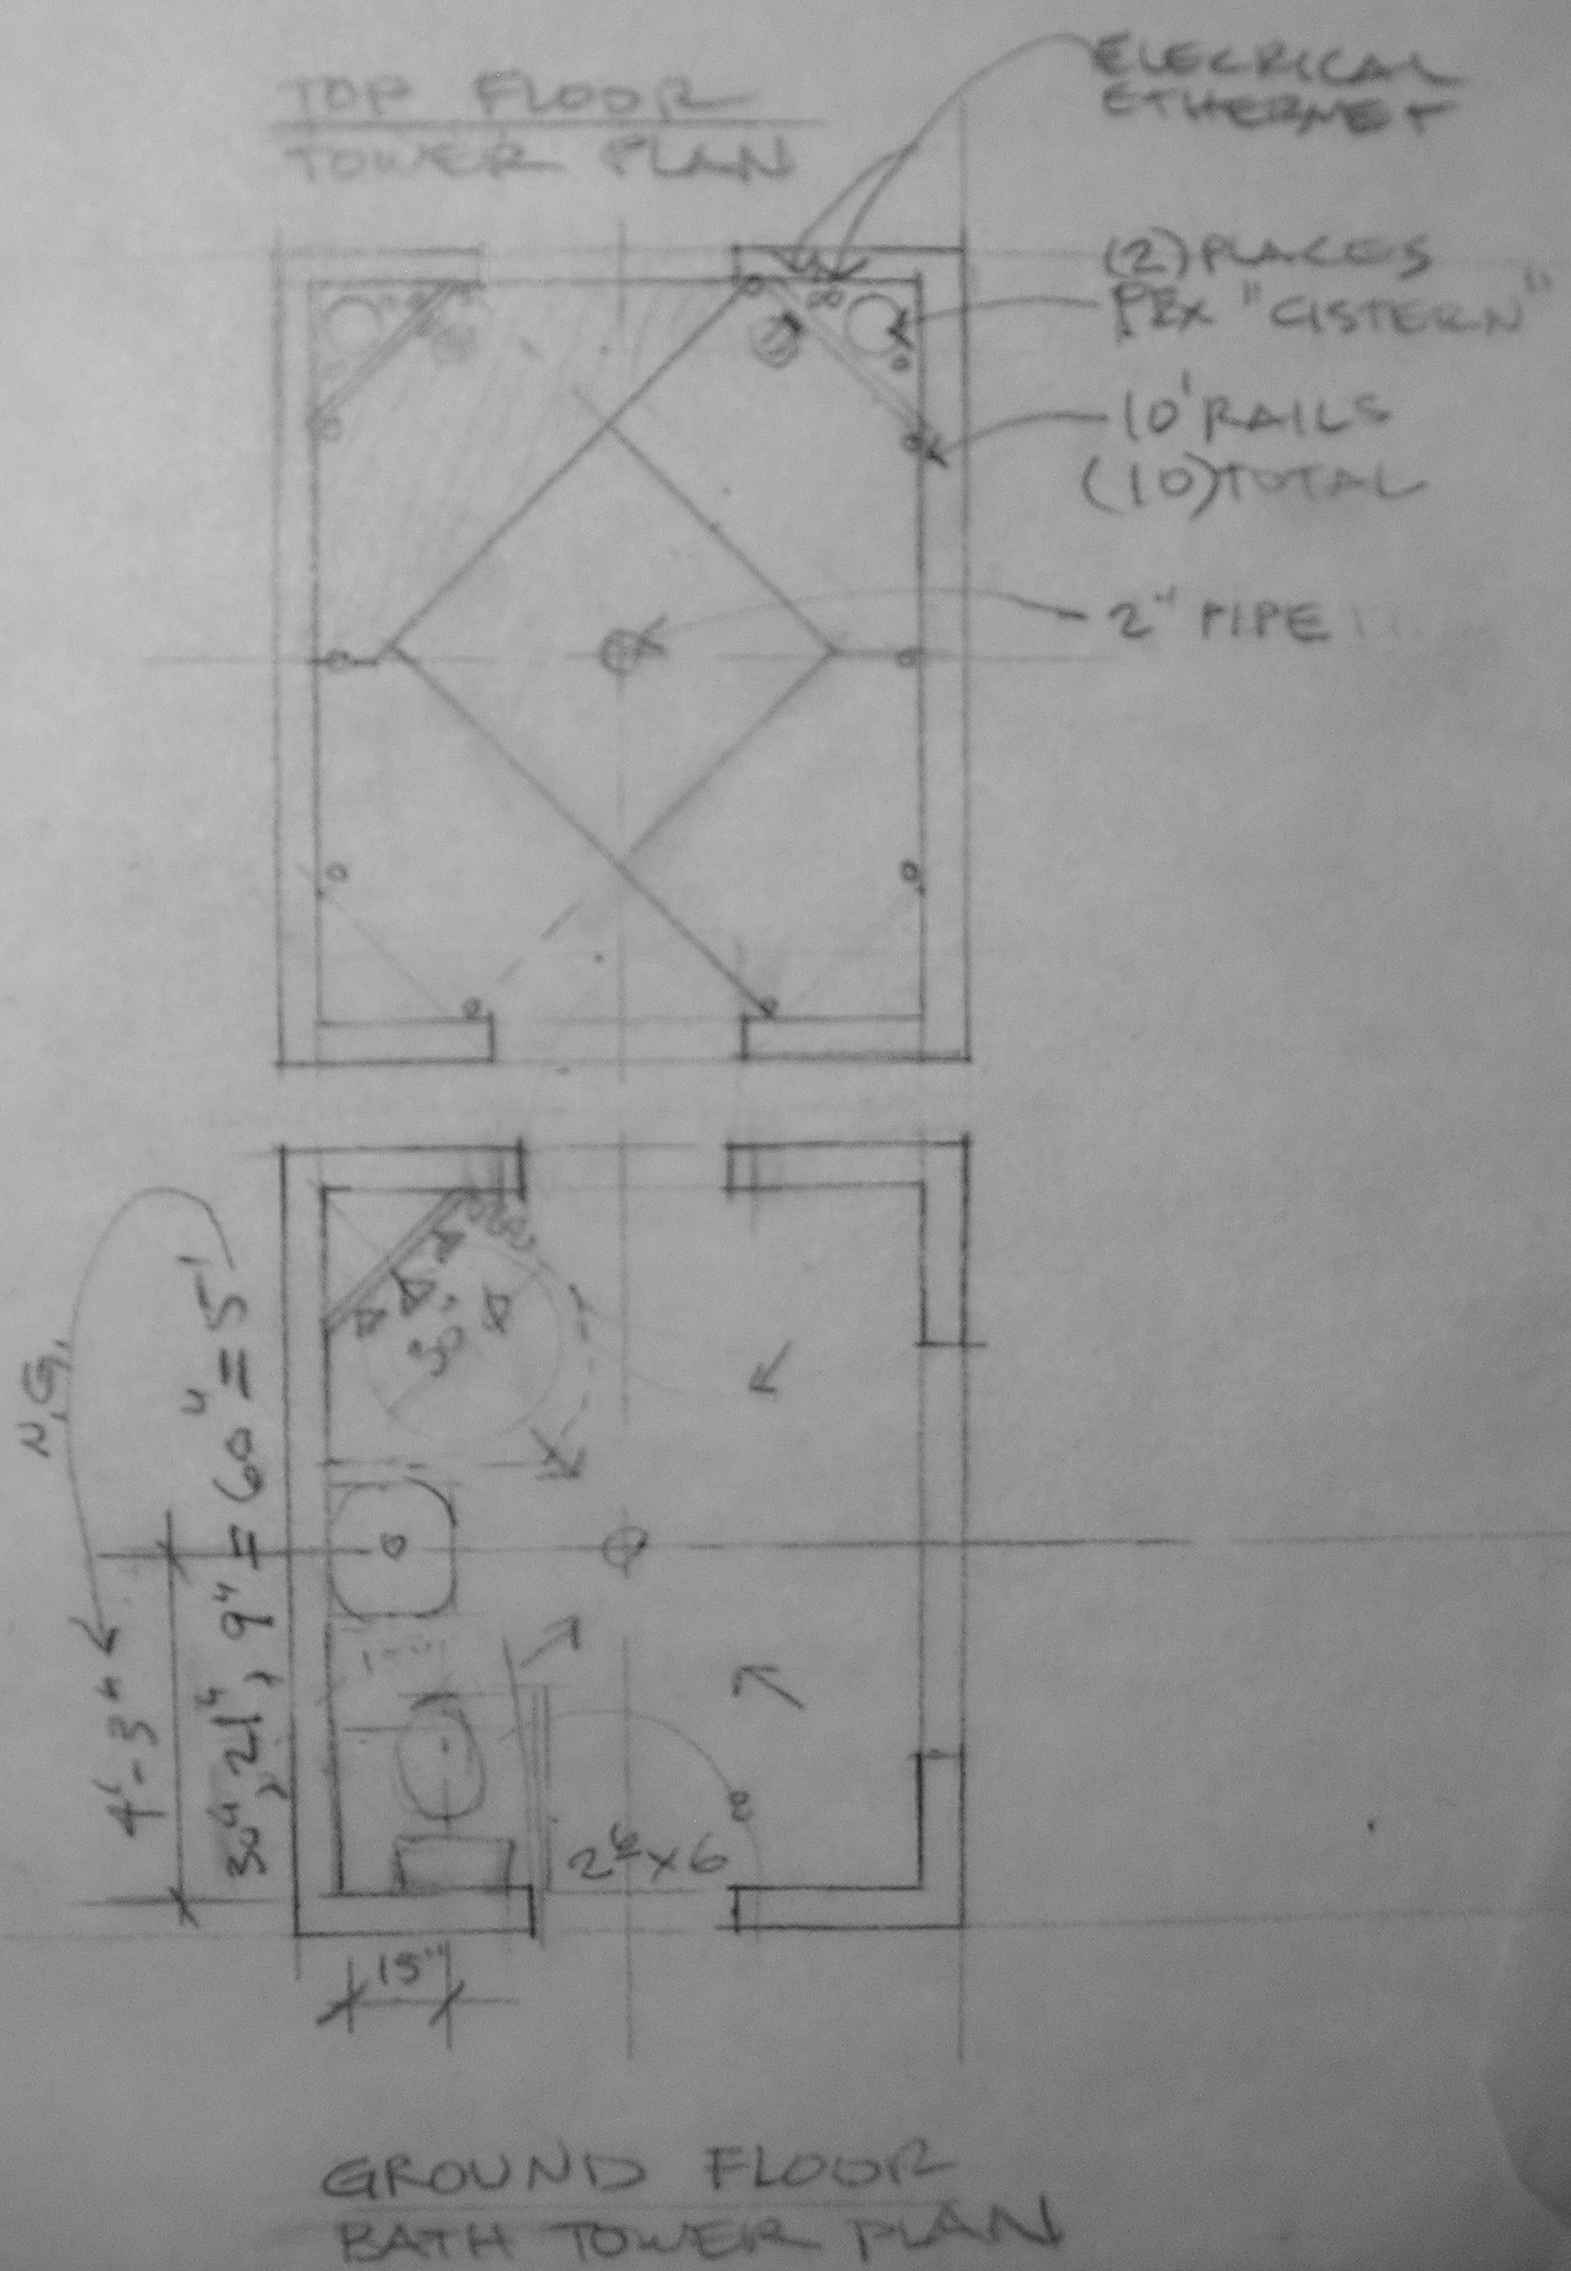 TOP FLOOR
TOWER PLAN
ELECRICAL
ETHERNET
(2) PLACES
PEX "CISTERN"
10' RAILS
(10) TOTAL
2" PIPE
N.G.
30"
4'-3"
30", 21", 9" = 60" = 5'
2⁶x6
15"
GROUND FLOOR
BATH TOWER PLAN